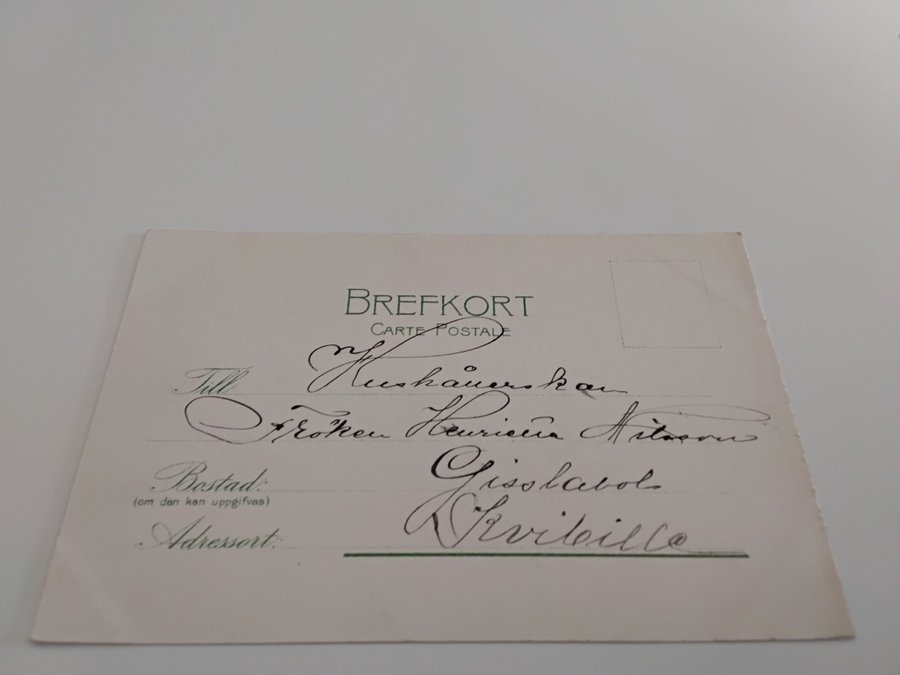 BREFKORT
CARTE POSTALE
Till Hushållerskan
Fröken Henrietta Nilsson
Bostad: Gisslabol
(om den kan uppgifvas)
Adressort: Kvibille